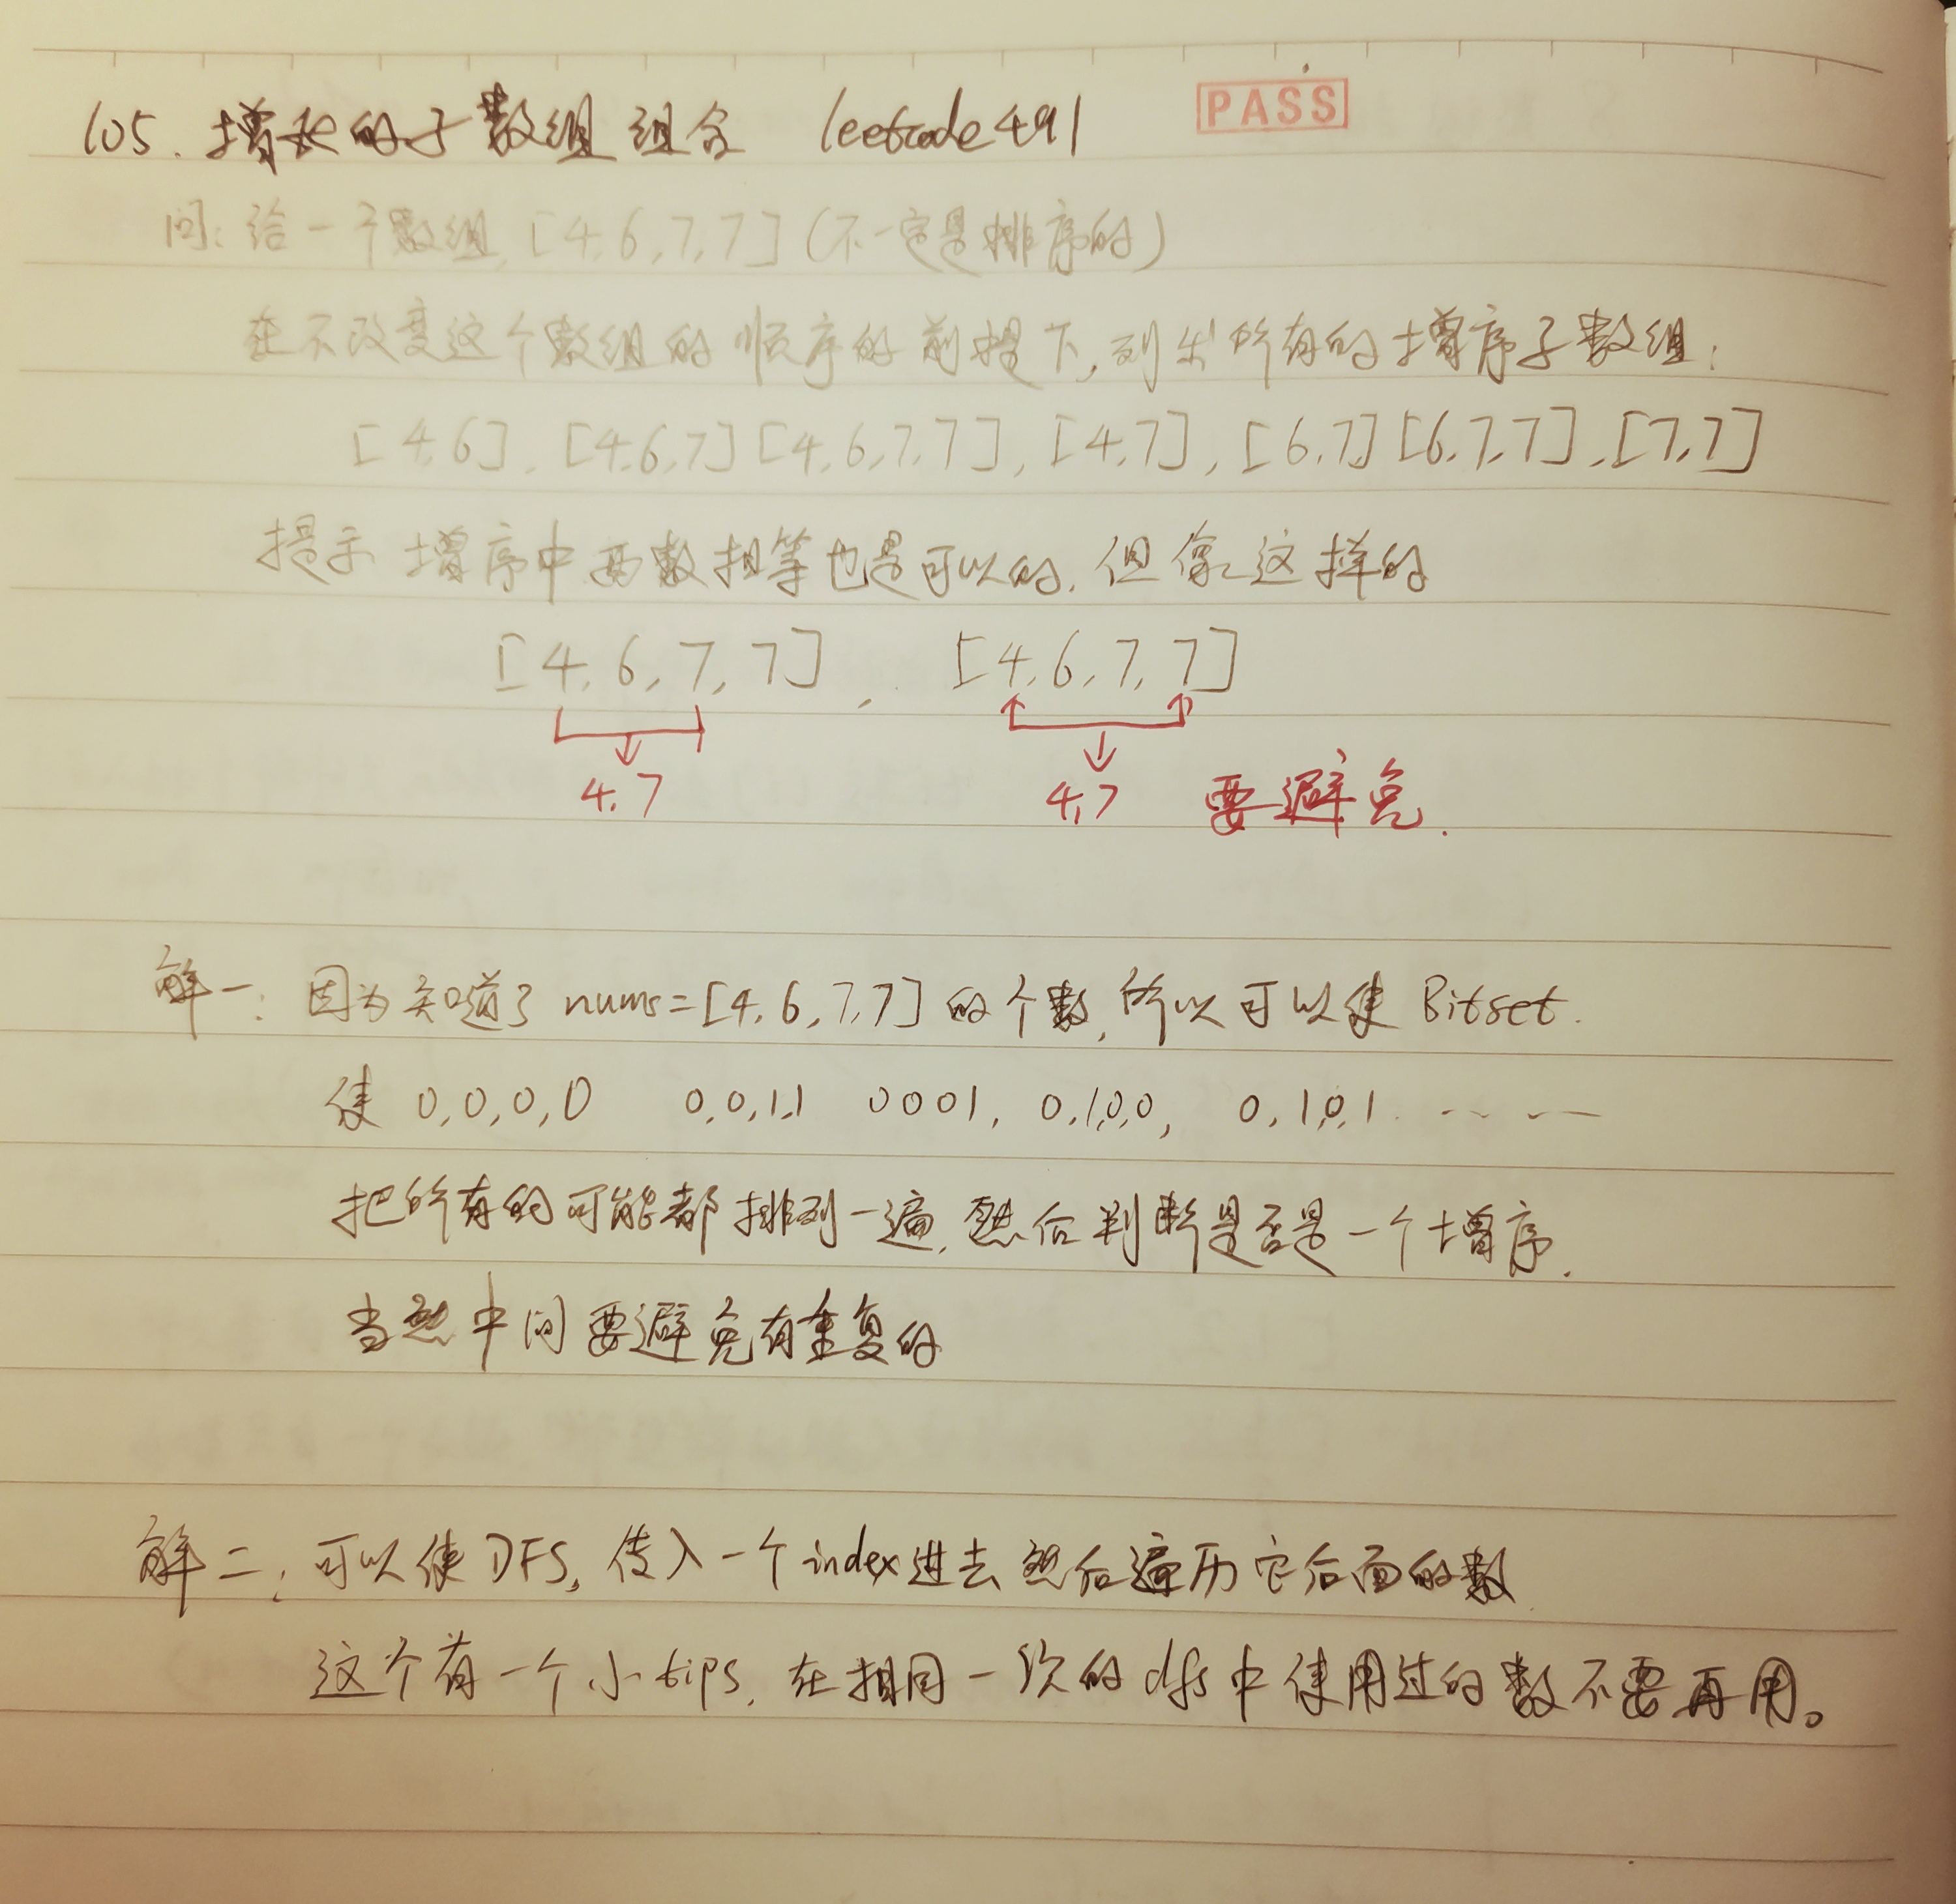 105. 增长的子数组组合 leetcode 491
PASS
问: 给一个数组, [4,6,7,7] (不一定是排序的)
在不改变这个数组的顺序的前提下, 列出所有的增序子数组:
[4,6], [4,6,7] [4,6,7,7], [4,7], [6,7] [6,7,7], [7,7]
提示 增序中两数相等也是可以的, 但像这样的
[4,6,7,7], [4,6,7,7]
4,7 4,7 要避免.
解一: 因为知道了 nums=[4,6,7,7] 的个数, 所以可以使 Bitset.
使 0,0,0,0 0,0,1,1 0001, 0,1,0,0, 0,1,0,1. ... ...
把所有的可能都排列一遍, 然后判断是否是一个增序.
当然中间要避免有重复的
解二: 可以使 DFS, 传入一个index进去 然后遍历它后面的数
这个有一个小tips, 在相同一次的dfs中使用过的数不要再用。